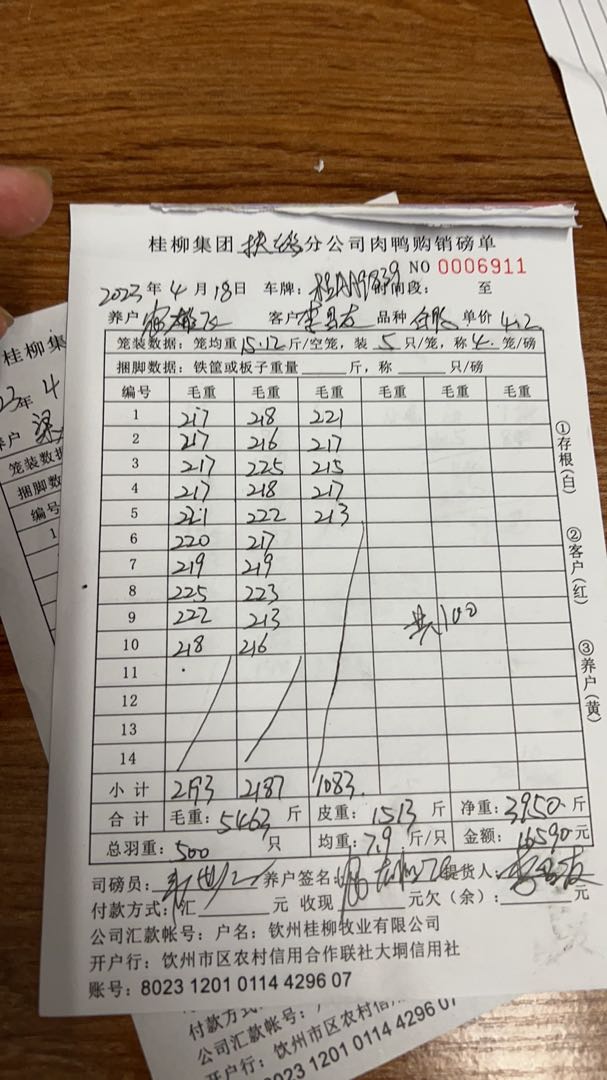 桂柳集团 分公司肉鸭购销磅单
NO 0006911
2023年4月18日 车牌: 桂AA9839 时间段: 至
养户 客户 品种 单价 4.2
笼装数据: 笼均重15.12斤/空笼, 装 5 只/笼, 称 4. 笼/磅
捆脚数据: 铁筐或板子重量 斤, 称 只/磅
编号 毛重 毛重 毛重 毛重 毛重 毛重
1 217 218 221
2 217 216 217
3 217 225 215
4 217 218 217
5 221 222 213
6 220 217
7 219 219
8 225 223
9 222 213 共100
10 218 216
11
12
13
14
小计 2193 2187 1083
合计 毛重: 5463 斤 皮重: 1513 斤 净重: 3950 斤
总羽重: 500 只 均重: 7.9 斤/只 金额: 16590 元
司磅员: 养户签名: 提货人:
付款方式: 汇 元 收现 元欠(余): 元
公司汇款帐号: 户名: 钦州桂柳牧业有限公司
开户行: 饮州市区农村信用合作联社大垌信用社
账号: 8023 1201 0114 4296 07
①存根(白)
②客户(红)
③养户(黄)
桂柳集
年 4
养户
笼装数据
捆脚数
编号
1
付款方式
公司汇款帐号:
开户行: 饮州市区农村信
8023 1201 0114 4296 07